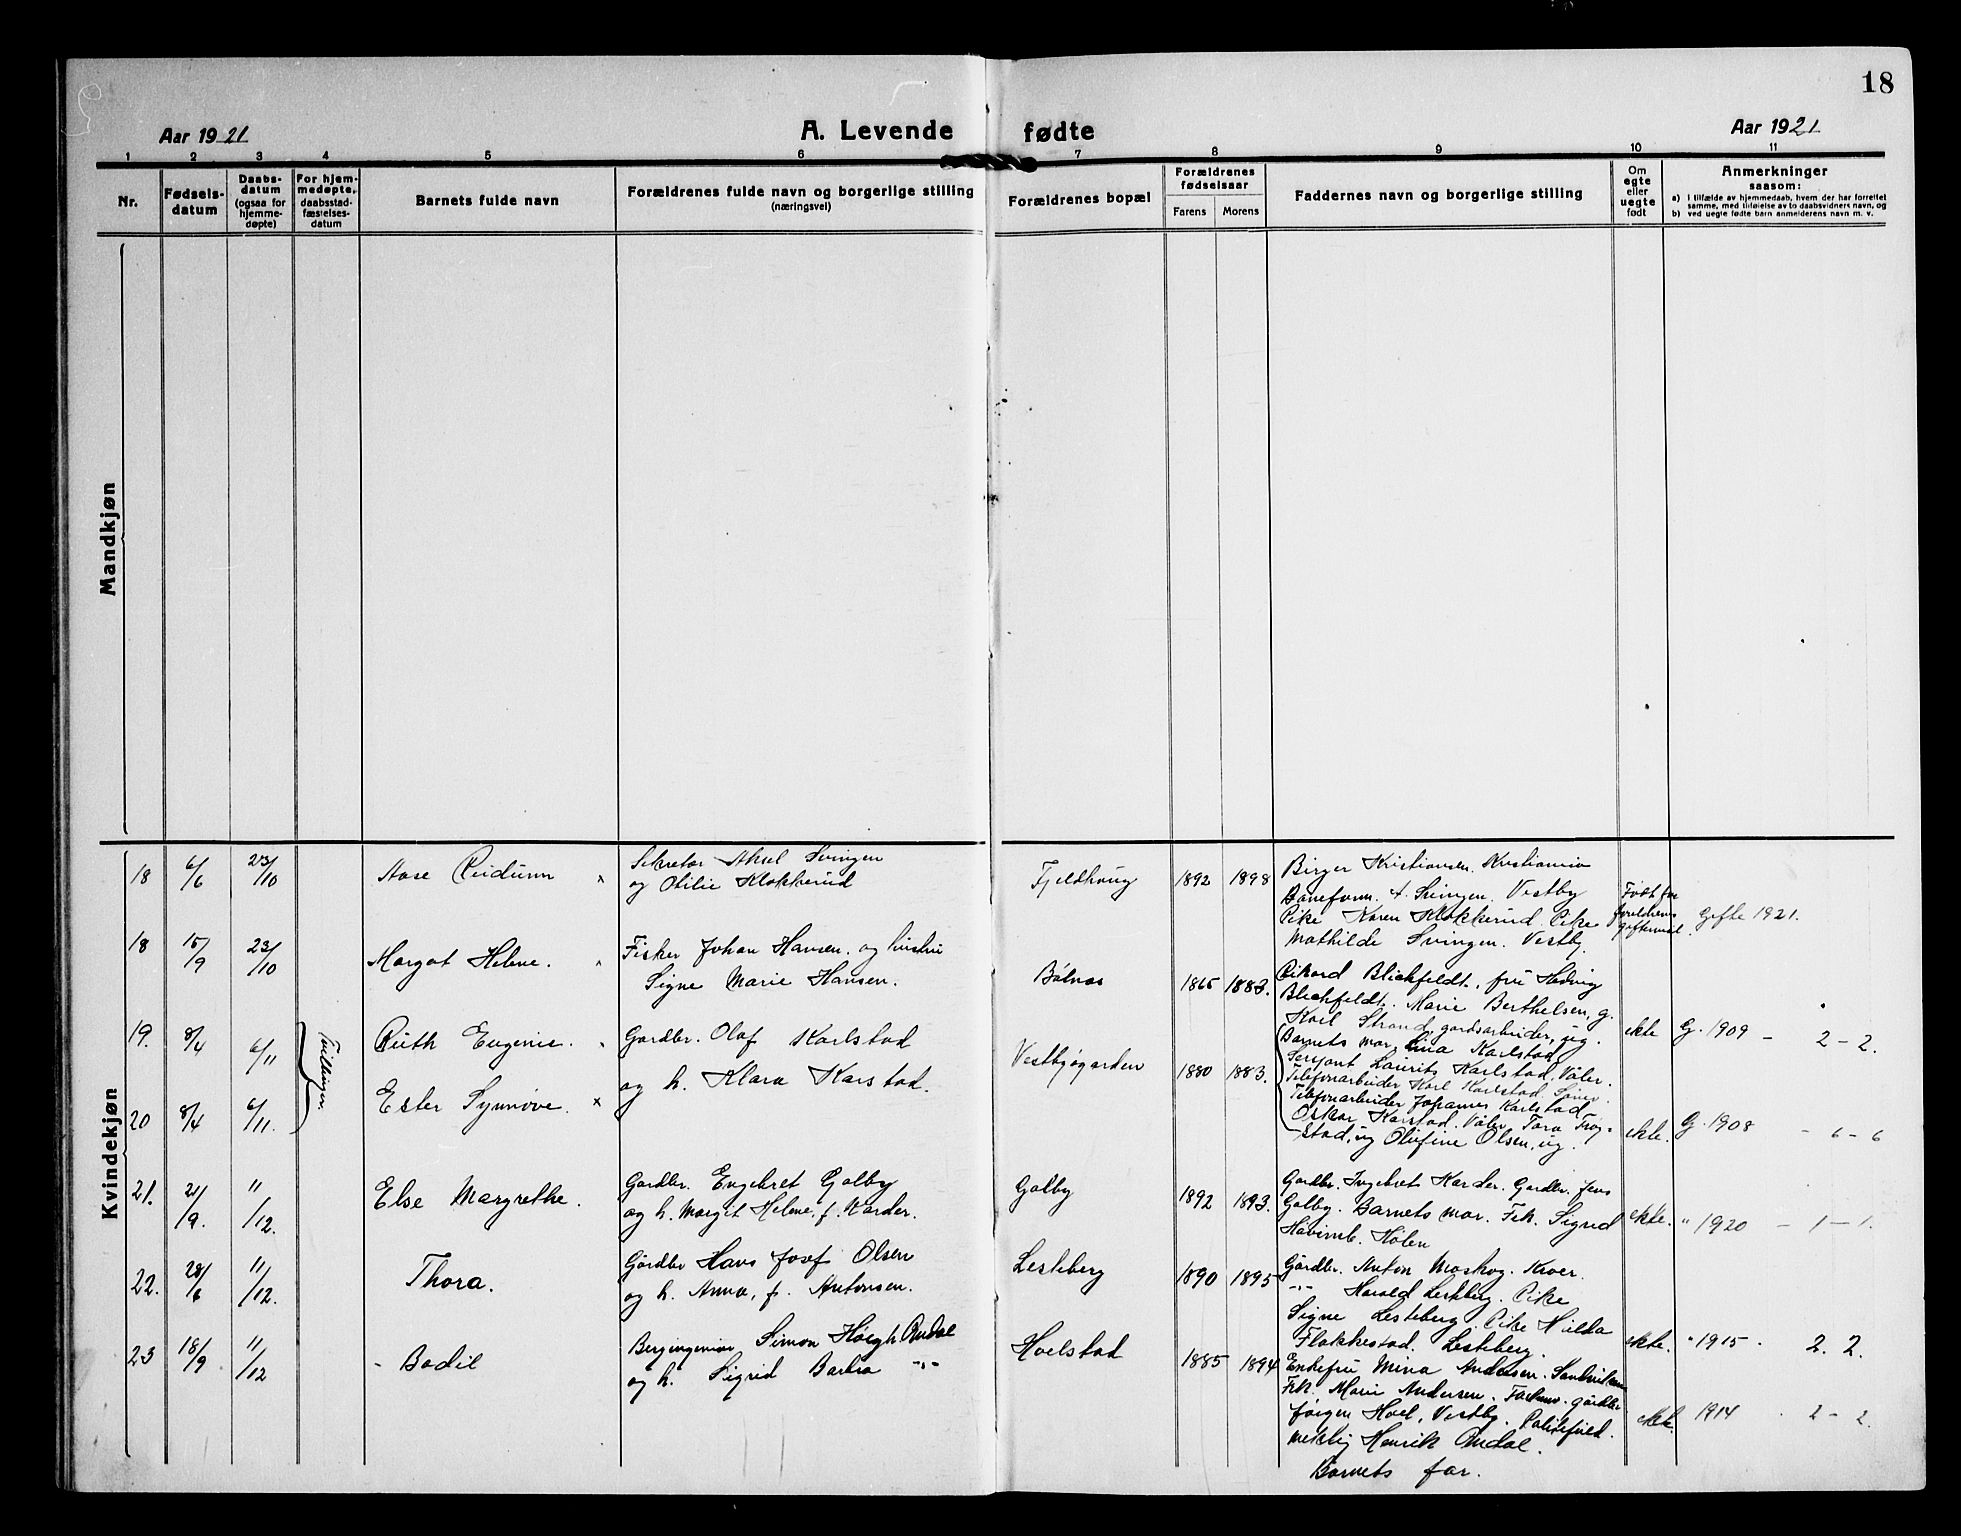 18
Aar 1921 A. Levende fødte Aar 1921
1 2 3 4 5 6 7 8 9 10 11
Nr.
Fødsels-
datum
Daabs-
datum
(ogsaa for
hjemme-
døpte)
For hjem-
medøpte,
daabsstad-
fæstelses-
datum
Barnets fulde navn
Forældrenes fulde navn og borgerlige stilling
(næringsvei)
Forældrenes bopæl
Forældrenes
fødselsaar
Farens Morens
Faddernes navn og borgerlige stilling
Om
egte
eller
uegte
født
Anmerkninger
saasom:
a) i tilfælde av hjemmedaab, hvem der har forrettet
samme, med tilføielse av to daabsvidners navn, og
b) ved uegte fødte barn anmelderens navn m. v.
Mandkjøn
Kvindekjøn
18 6/6 23/10
Sekretær Aksel Svingen
og Otilie Klokkerud
Fjeldhaug 1892 1898
Birger Kristiansen. Kristiania
Baneform. A. Svingen. Vestby
Pike Karen Klokkerud. Pike
Mathilde Svingen. Vestby.
Født før
foreldrenes
giftermål.
Gifte 1921.
18 15/9 23/10
Margot Helene.
Fisker Johan Hansen. og hustru
Signe Marie Hansen.
Bølnes 1865 1883.
Rikard Blichfeldt, fru Hedvig
Blichfeldt. Marie Berthelsen, g.
Karl Strand, gardsarbeider, ug.
ekte G. 1909 - 2-2.
19. 8/4 6/11
Tvillinger.
Ruth Eugenie.
Gardbr. Olaf Karlstad
og h. Klara Karstad.
Vestbygarden 1880 1883.
Barnets mor, Lina Karlstad
Serjant Laurits Karlstad, Våler.
Telefonarbeider Karl Karlstad
Telefonarbeider Johannes Karlstad
Oskar Karstad. Våler, Tora Trog-
stad, ug Olufine Olsen, ug.
20 8/4 6/11.
Ester Synnøve.
ekte. G. 1908 - 6-6
21. 21/9. 11/12.
Else Margrethe.
Gardbr. Engebret Galby
og h. Margit Helene, f. Karder.
Galby 1892 1893.
Gardbr. Ingebret Karder. Gardbr. Jens
Galby. Barnets mor. Frk. Sigrid
Hølen
ekte. " 1920 - 1-1.
22. 28/6 11/12.
Thora.
Gårdbr Hans Josef Olsen
og h. Anna, f. Antonsen.
Lesteberg 1890 1895
Gårdbr. Anton Moskog. Kroer.
-"- Harald Lesteberg. Pike
Signe Lesteberg. Pike Hilda
Flakkestad. Lesteberg.
ekte. " 1915. 2. 2.
23 18/9 11/12
- Bodil
Bergingeniør Simon Høegh Omdal
og h. Sigrid Barbra -"-
Hoelstad 1885 1894
Enkefru Mina Andersen.
Frk. Marie Andersen. gårdbr
Jørgen Hoel, Vestby.
Henrik Omdal.
Barnets far.
ekte. 1914 . 2-2.